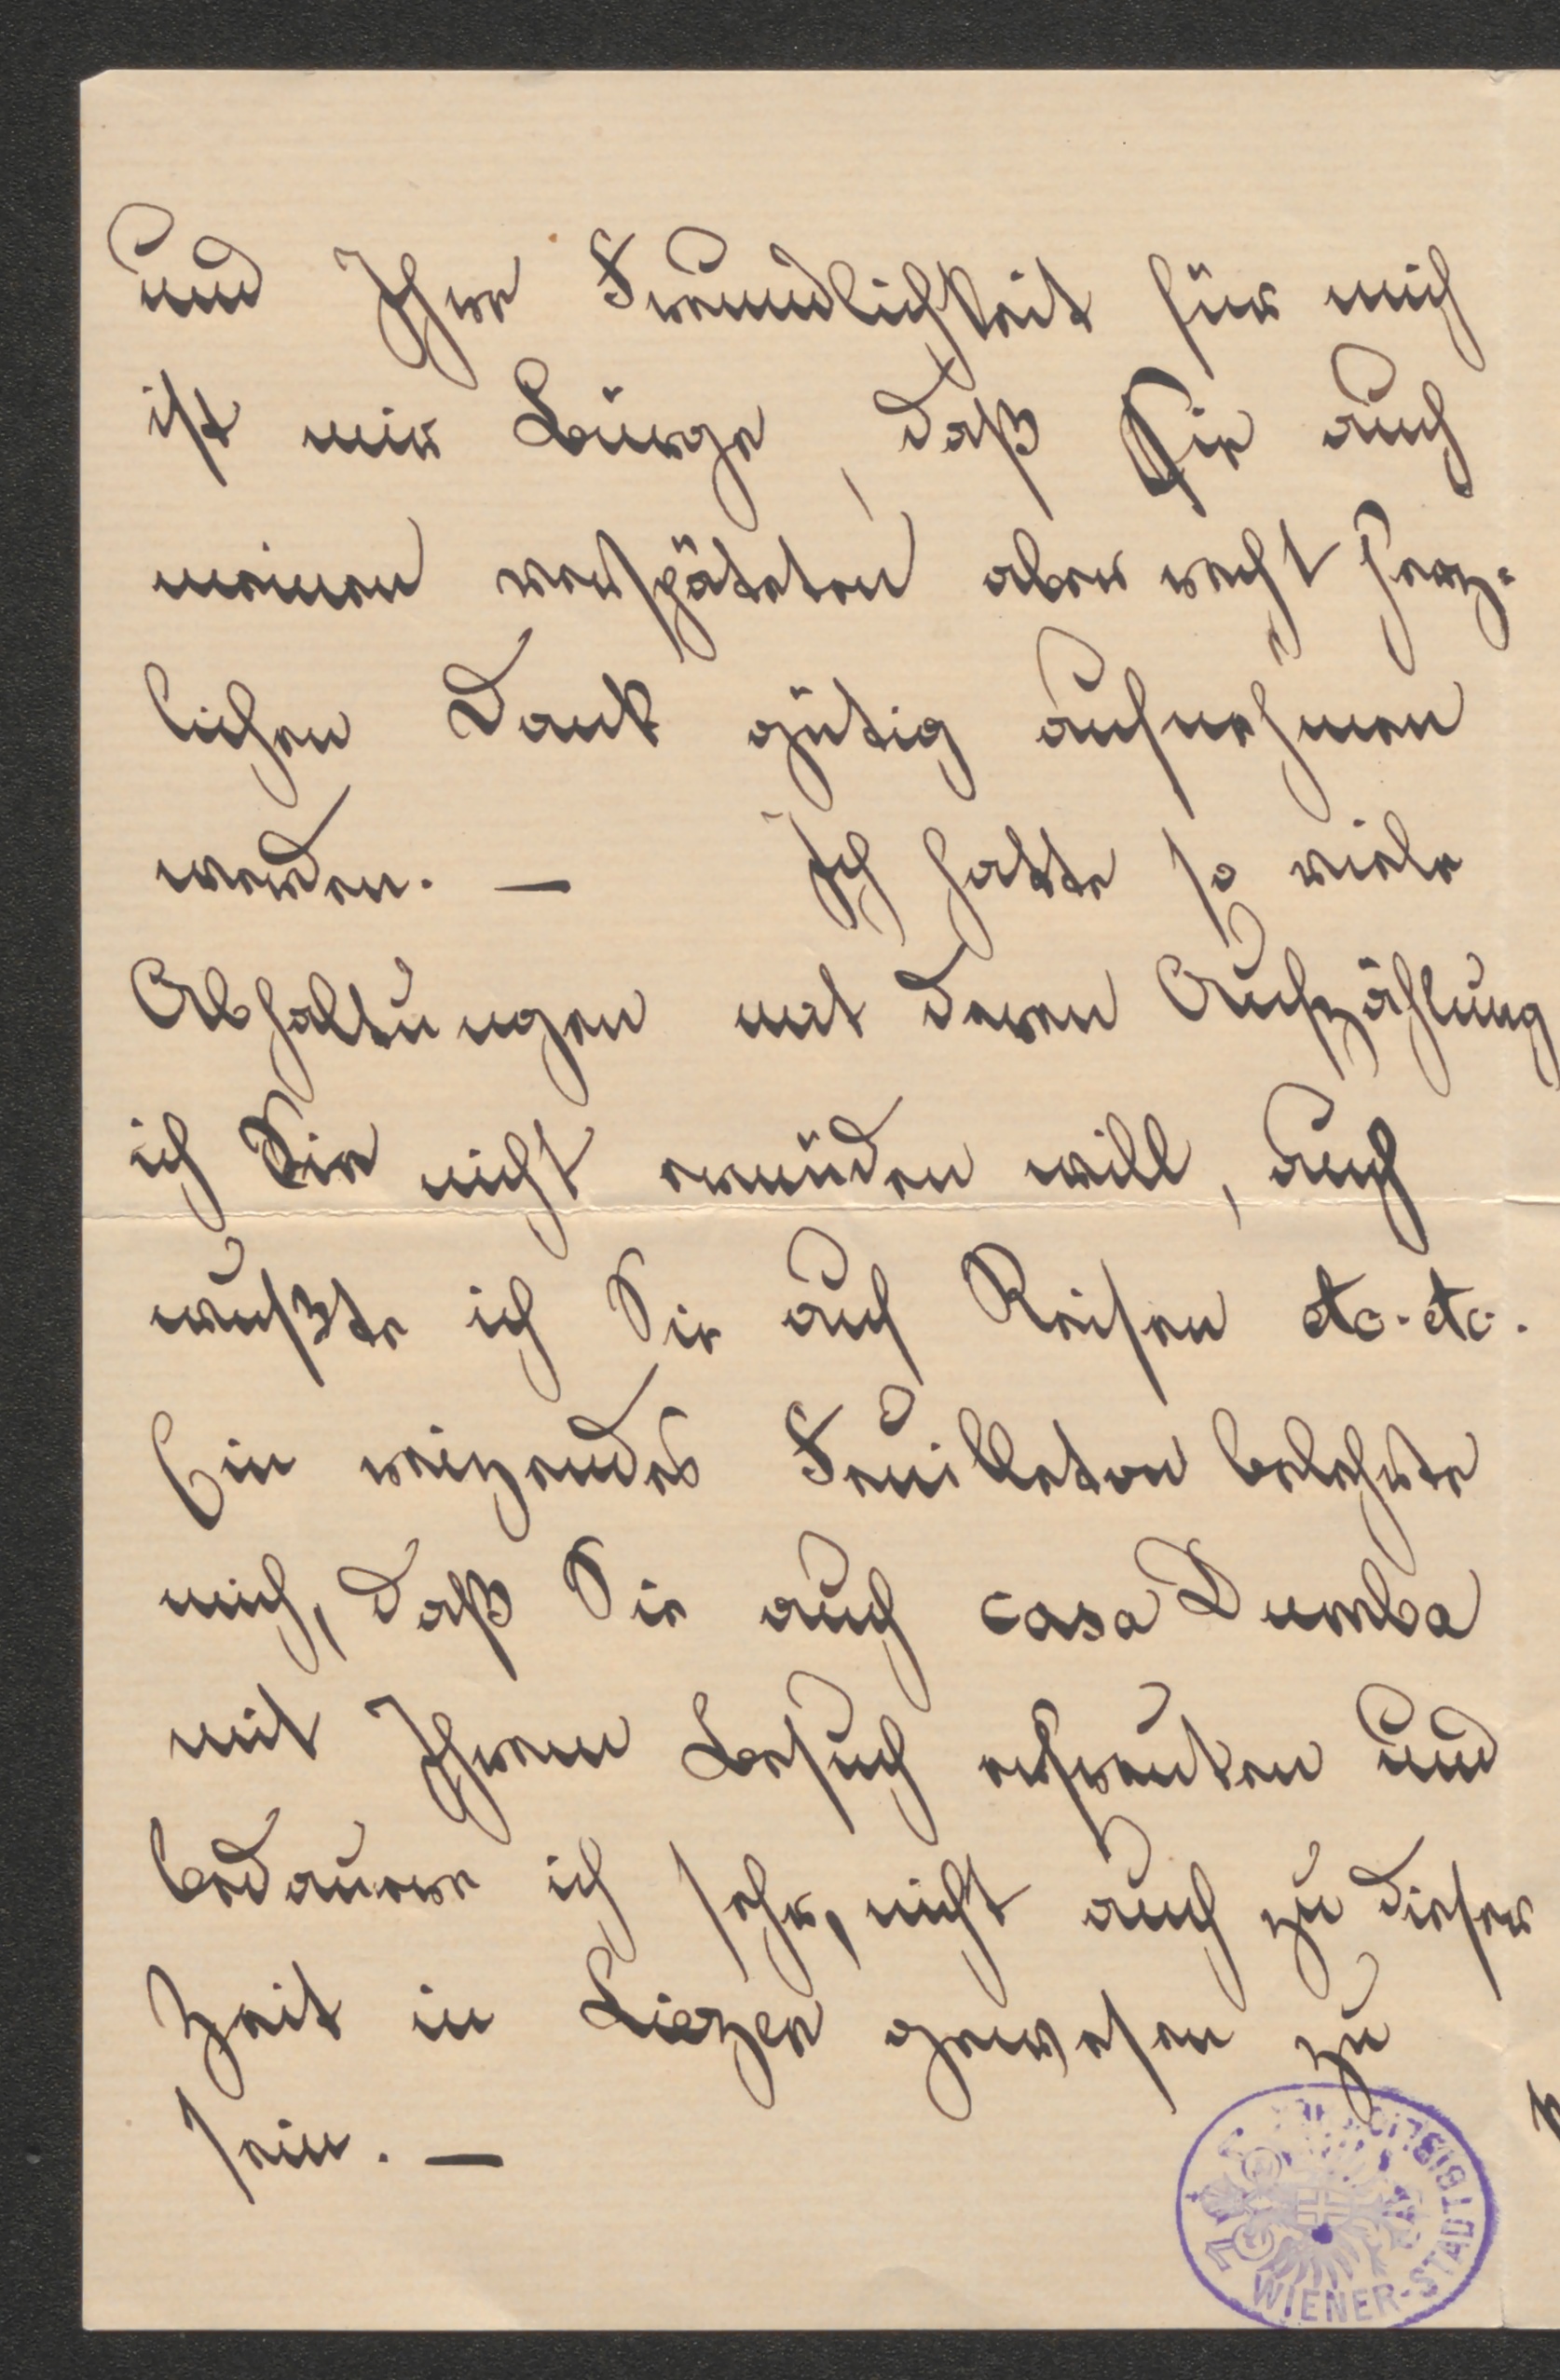 und Ihre Freundlichkeit für mich
ist mir Bürge, daß Sie auch
meinen verspäteten aber recht herz-
lichen Dank gütig aufnehmen
werden. — Ich hatte so viele
Abhaltungen mit deren Aufzählung
ich Sie nicht ermüden will, auch
wußte ich Sie auf Reisen etc. etc.
Ein reizendes Feuilleton belehrte
mich, daß Sie auch casa Dumba
mit Ihrem Besuch erfreuten und
bedauere ich sehr, nicht auch zu dieser
Zeit in Liezen gewesen zu
sein. —
WIENER-STADTBIBLIOTHEK